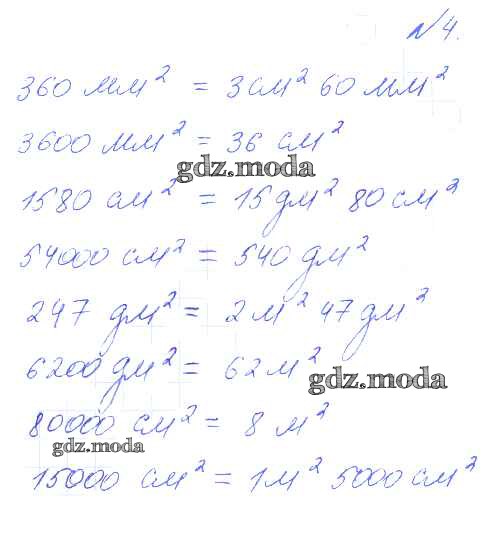 №4.
360 мм² = 3 см² 60 мм²
3600 мм² = 36 см²
gdz.moda
1580 см² = 15 дм² 80 см²
54000 см² = 540 дм²
247 дм² = 2 м² 47 дм²
6200 дм² = 62 м²
gdz.moda
80000 см² = 8 м²
gdz.moda
15000 см² = 1 м² 5000 см²